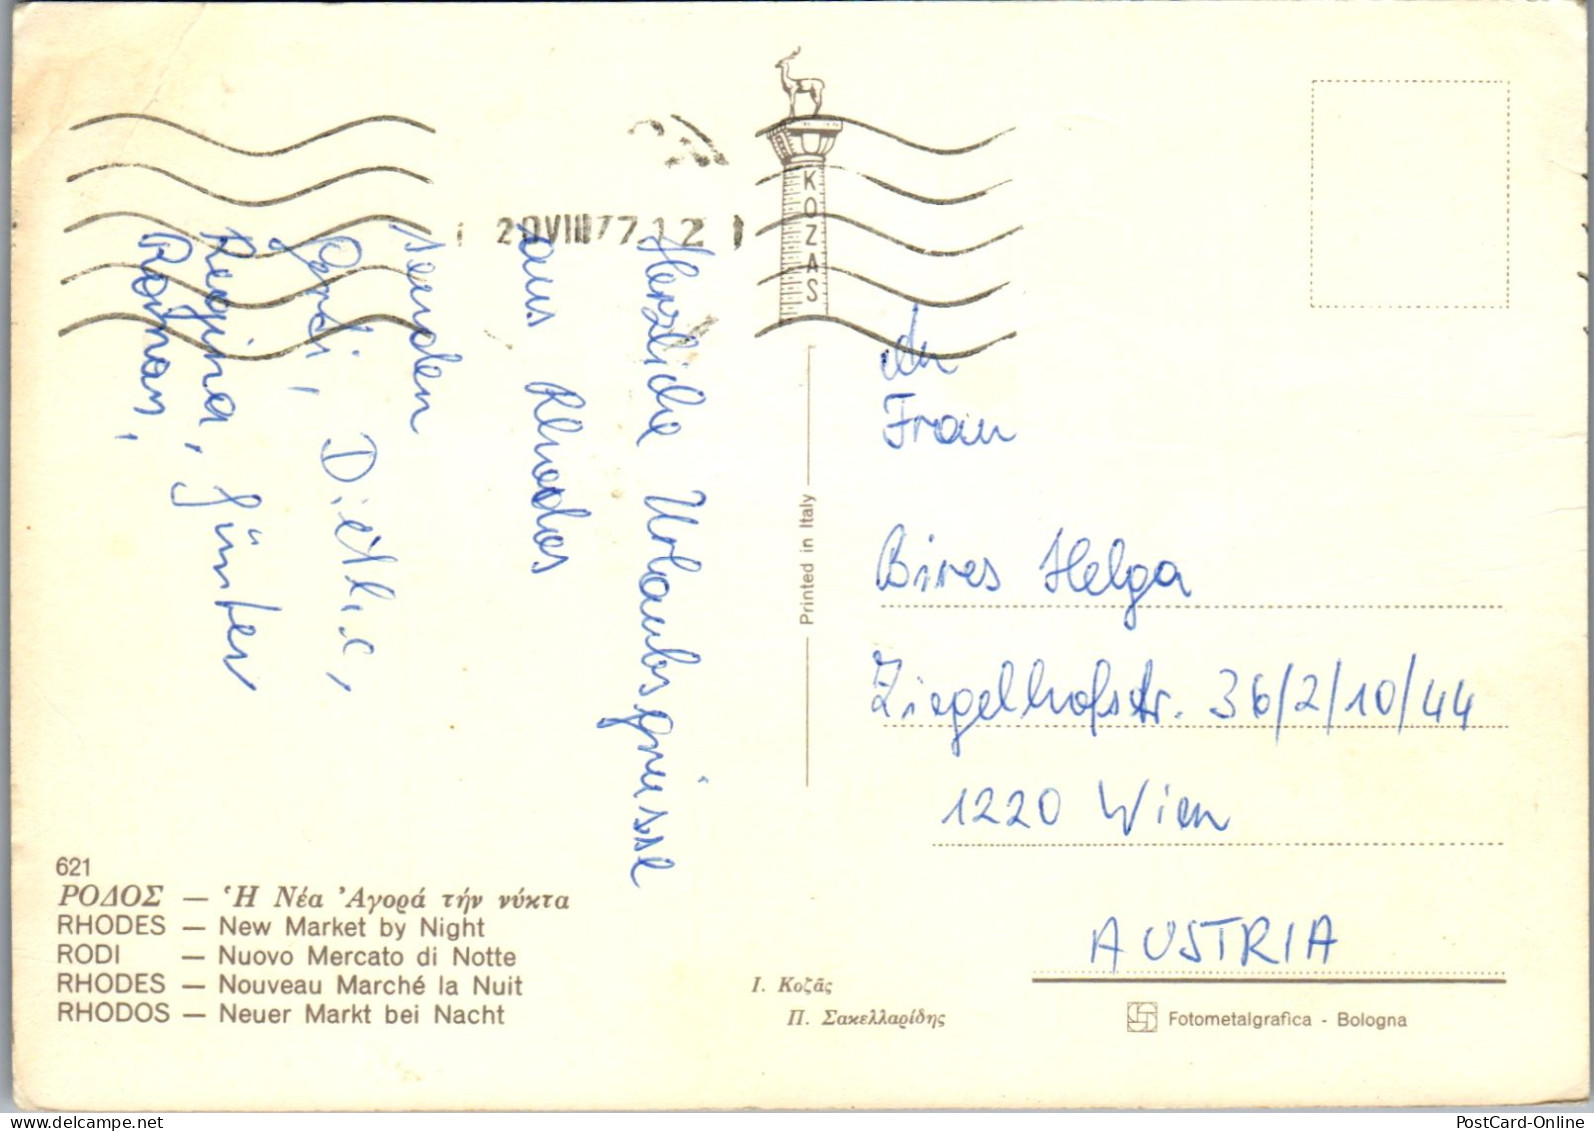 20 VIII 77 12
KOZAS
Herzliche Urlaubsgrüsse
aus Rhodos
senden
Gerti, Dietlic,
Regina, Günter
Roman,
An
Frau
Bires Helga
Ziegelhofstr. 36/2/10/44
1220 Wien
AUSTRIA
Printed in Italy
621
ΡΟΔΟΣ — Ἡ Νέα Ἀγορά τήν νύκτα
RHODES — New Market by Night
RODI — Nuovo Mercato di Notte
RHODES — Nouveau Marché la Nuit
RHODOS — Neuer Markt bei Nacht
Ι. Κοζᾶς
Π. Σακελλαρίδης
Fotometalgrafica - Bologna
PostCard-Online